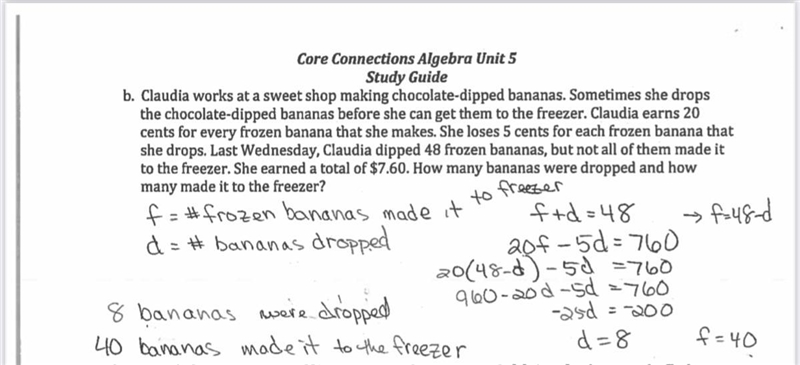 Core Connections Algebra Unit 5
Study Guide
b. Claudia works at a sweet shop making chocolate-dipped bananas. Sometimes she drops
the chocolate-dipped bananas before she can get them to the freezer. Claudia earns 20
cents for every frozen banana that she makes. She loses 5 cents for each frozen banana that
she drops. Last Wednesday, Claudia dipped 48 frozen bananas, but not all of them made it
to the freezer. She earned a total of $7.60. How many bananas were dropped and how
many made it to the freezer?
f = # frozen bananas made it to freezer
d = # bananas dropped
f + d = 48 → f=48-d
20f - 5d = 760
20(48-d) - 5d = 760
960 - 20d - 5d = 760
-25d = -200
d = 8 f = 40
8 bananas were dropped
40 bananas made it to the freezer